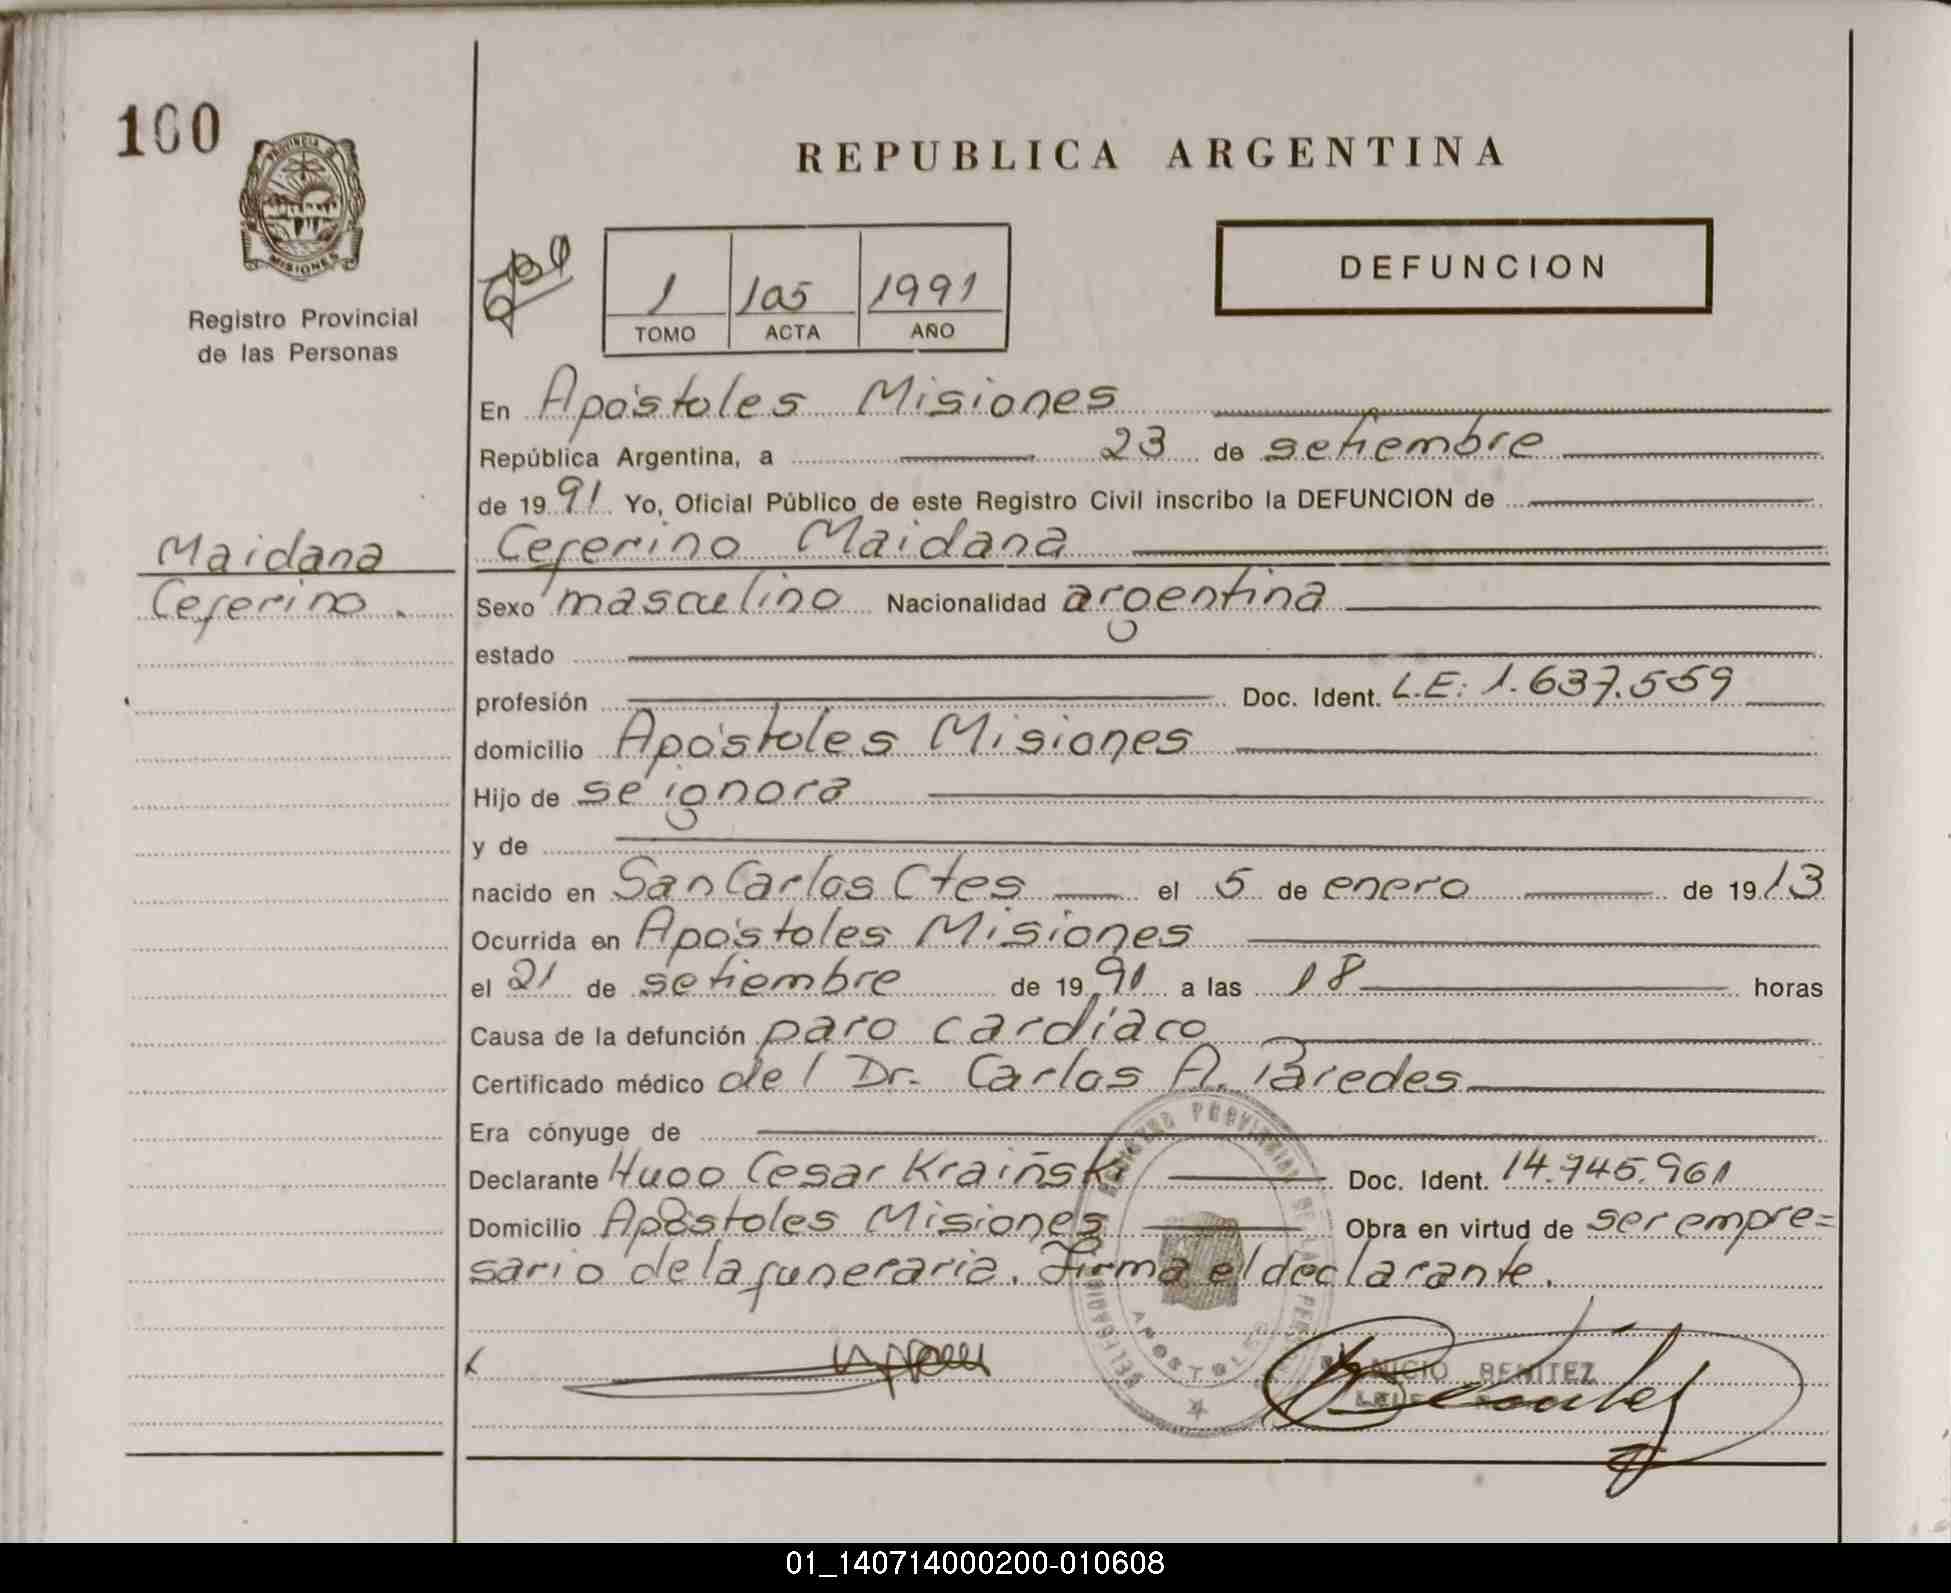 100
PROVINCIA DE
MISIONES
Registro Provincial
de las Personas
REPUBLICA ARGENTINA
1 105 1991
TOMO ACTA AÑO
DEFUNCION
En Apóstoles Misiones
República Argentina, a 23 de setiembre
de 1991 Yo, Oficial Público de este Registro Civil inscribo la DEFUNCION de
Maidana
Ceferino Maidana
Ceferino.
Sexo masculino Nacionalidad argentina
estado
profesión Doc. Ident. L.E: 1.637.559
domicilio Apóstoles Misiones
Hijo de se ignora
y de
nacido en San Carlos Ctes el 5 de enero de 1913
Ocurrida en Apóstoles Misiones
el 21 de setiembre de 1991 a las 18 horas
Causa de la defunción paro cardíaco
Certificado médico del Dr. Carlos A. Paredes
Era cónyuge de
Declarante Hugo Cesar Kraiñski Doc. Ident. 14.745.961
Domicilio Apóstoles Misiones Obra en virtud de ser empre=
sario de la funeraria. Firma el declarante.
REGISTRO PROVINCIAL DE LAS
APOSTOLES
BENITEZ
01_140714000200-010608